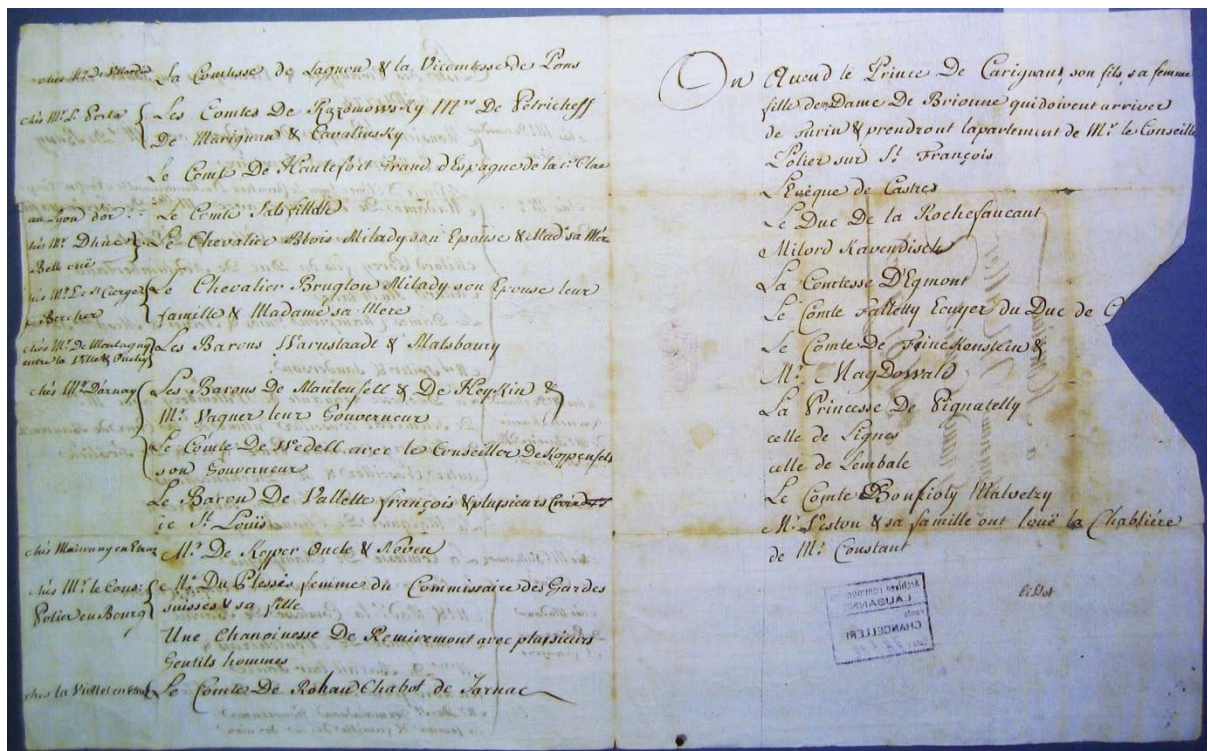 chés Mr. De Villardin La Comtesse de Lagnon & la Vicomtesse de Pons
chés Mr. L. Porta Les Comtes De Razomowsky Mrs. De Petricheff
De Marignan & Cavaliesky
Le Comte De Hautefort Grand d'Espagne de la 1e. Clae
au Lyon d'or Le Comte
chés Mr. Dhue Le Chevalier Blois Milady son Epouse & Mad. sa Mére
Belle vuë
Le Chevalier Bruglon Milady son Epouse leur
Bercher famille & Madame sa Mere
chés Mr. De Montagny Les Barons Warnstaadt & Malsbourg
entre la Ville & Ouchy
chés Mr. Darnay Les Barons De Manteufell & De Heykin &
Mr. Vaguer leur Gouverneur
Le Comte De Wedell avec le Conseiller De Koppenfels
son Gouverneur
Le Baron De Vallette françois & plusieurs Croix
de St. Louïs
Mr. De Keyper Oncle & Néveu
chés Mr. le Cons. Me. Du Plessés femme du Commissaire des Gardes
Polier en Bourg suisses & sa fille
Une Chanoinesse De Remiremont avec plusieurs
Gentils hommes
chés la Viollet en Etraz Le Comte De Rohan Chabot de Jarnac
On Attend le Prince De Carignan, son fils, sa femme
fille de Dame De Brionne qui doivent arriver
de Turin & prendront lapartement de Mr. le Conseille
Polier sur St. François
L'Evêque de Castres
Le Duc De la Rochefaucant
Milord Kavendisch
La Comtesse D'Egmont
Le Comte Falletty Ecuyer du Duc de C
Le Comte de Finckenstein &
Mr. MagDowald
La Princesse De Pignatelly
celle de Lignes
celle de Lembale
Le Comte Boufioly Malvetzy
Mr. Veston & sa famille ont louë la Chabliére
de Mr. Constant
LAUSANNE
CHANCELLERI